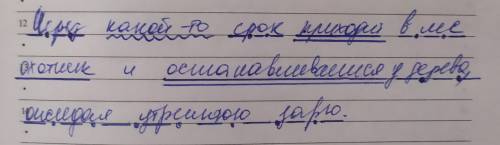 12 Через какой-то срок приходил в лес
охотник и останавливался у дерева,
ожидая утреннюю зарю.